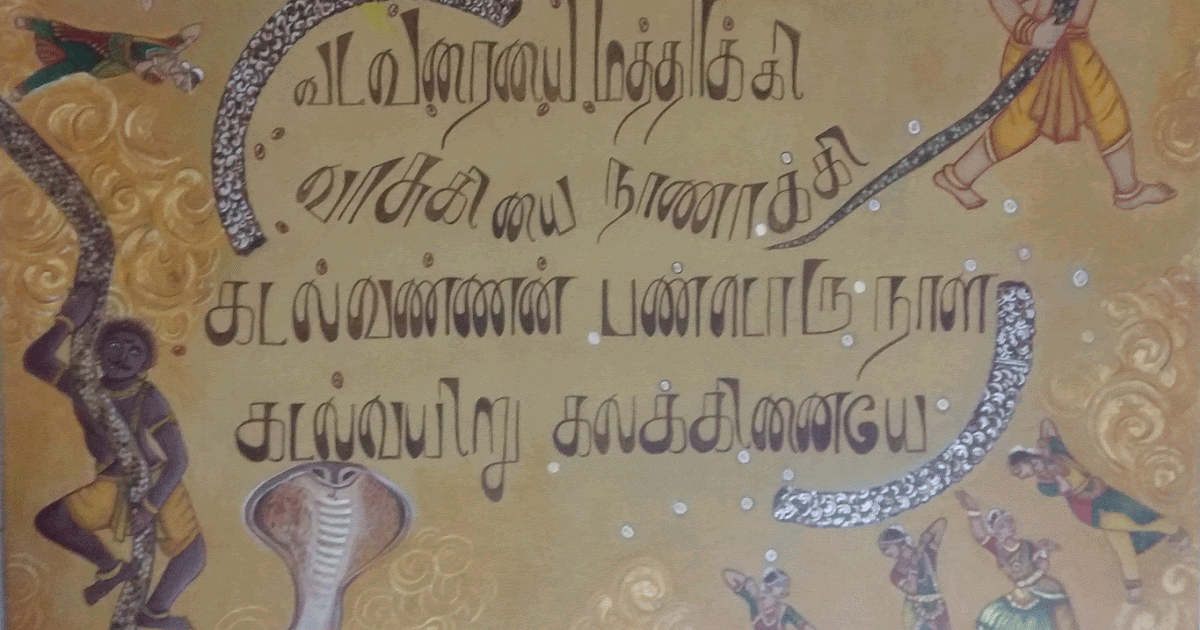 வடவரையை மத்தாக்கி
வாசுகியை நாணாக்கி
கடல்வண்ணன் பண்டொரு நாள்
கடல்வயிறு கலக்கினையே